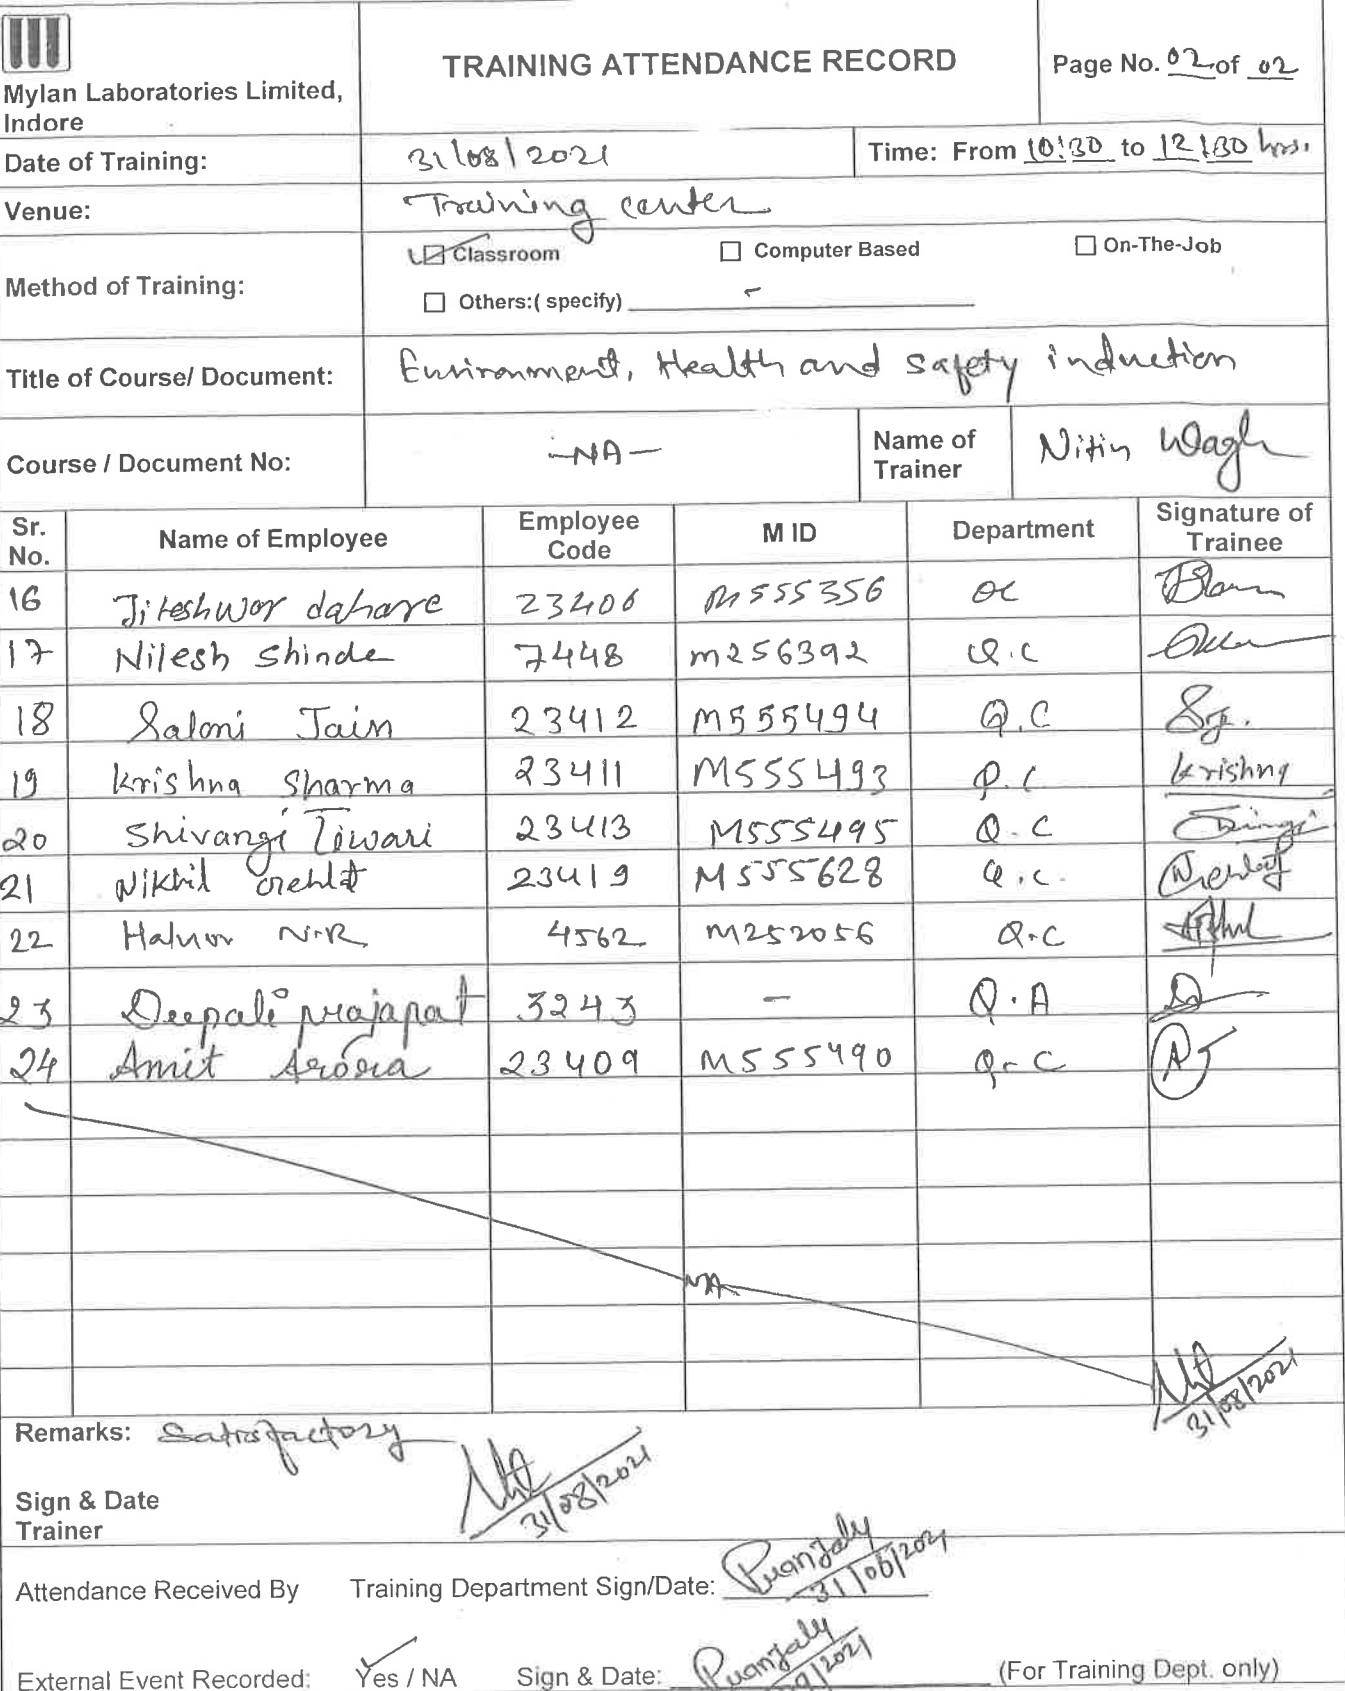 Mylan Laboratories Limited,
Indore
TRAINING ATTENDANCE RECORD
Page No. 02 of 02
Date of Training: 31/08/2021 Time: From 10:30 to 12:30 hrs.
Venue: Training center
Method of Training: Classroom Computer Based On-The-Job
Others:( specify) -
Title of Course/ Document: Environment, Health and safety induction
Course / Document No: -NA- Name of Trainer Nitin Wagh
Sr. No. Name of Employee Employee Code M ID Department Signature of Trainee
16 Jiteshwor dahare 23406 M555356 QC
17 Nilesh Shinde 7448 m256392 Q.C
18 Saloni Jain 23412 M555494 Q.C
19 Krishna Sharma 23411 M555493 Q.C Krishna
20 Shivangi Tiwari 23413 M555495 Q.C
21 Nikhil 23419 M555628 Q.C.
22 Halnor N.R 4562 M252056 Q.C
23 Deepali prajapat 3243 - Q.A
24 Amit Arora 23409 M555490 Q-C
NA
31/08/2021
Remarks: Satisfactory
Sign & Date
Trainer
31/08/2021
Attendance Received By Training Department Sign/Date:
External Event Recorded: Yes / NA Sign & Date: (For Training Dept. only)